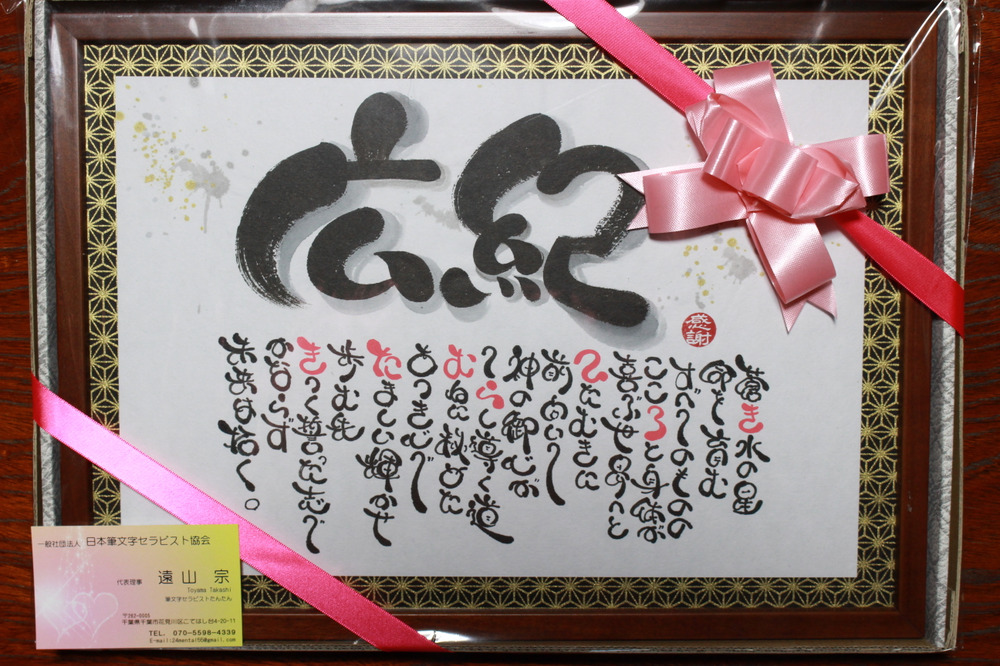 広紀
感謝
蒼き水の星
命を育む
すべてのものの
こころと身体が
喜ぶ世界へと
ひたむきに
前向いて
神の御心が
てらし導く道
むねに秘めた
あつき心で
たましい輝かせ
歩む
きつく誓った志で
かならず
は拓く。
一般社団法人 日本筆文字セラピスト協会
代表理事 遠山 宗
Toyama Takashi
筆文字セラピストたんたん
〒262-0005
千葉県千葉市花見川区こてはし台4-20-11
TEL. 070-5598-4339
E-mail:24mental55@gmail.com